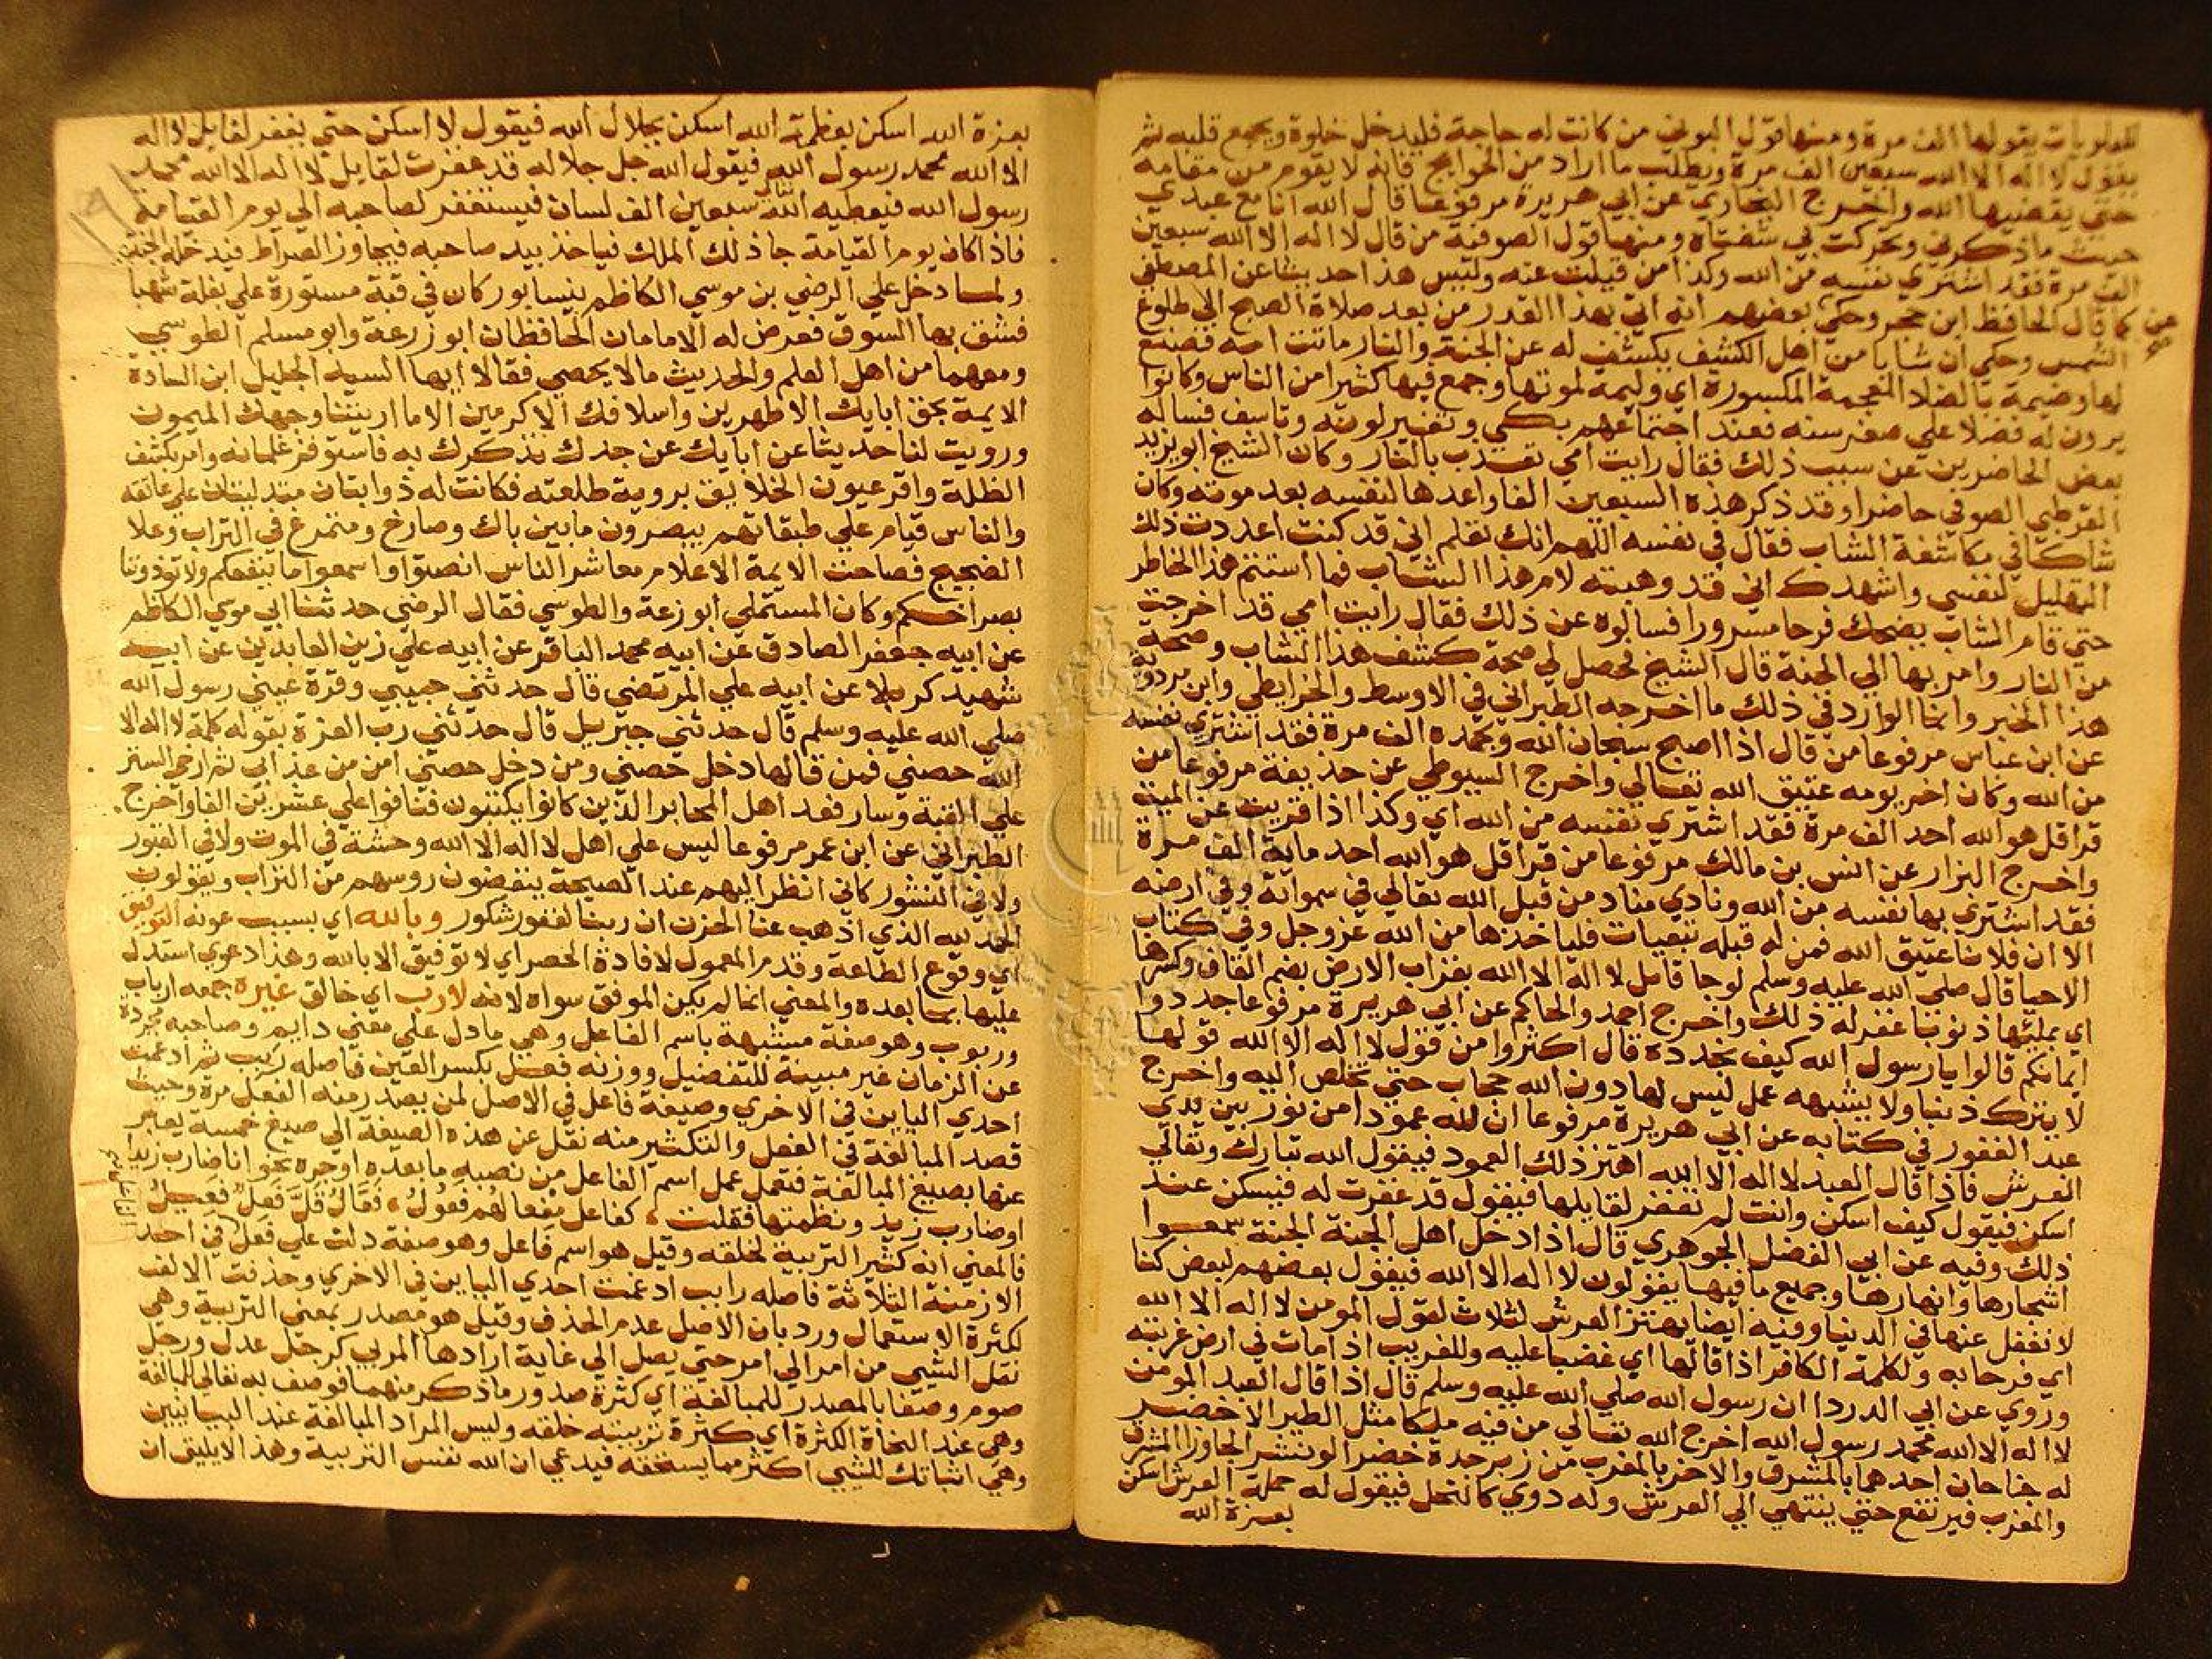 للعلويات يقولها الف مرة ومنها قول البوني من كانت له حاجة فليدخل خلوة ويجمع قلبه ثم
يقول لا اله الا الله سبعين الف مرة ويطلب ما اراد من الحوايج فانه لا يقوم من مقامه
حتي يقضيها الله واخرج البخاري عن ابي هريرة مرفوعا قال الله انا مع عبدي
حيث ما ذكرني وتحركت بي شفتاه ومنها قول الصوفية من قال لا اله الا الله سبعين
الف مرة فقد اشتري نفسه من الله وكذا من قيلت عنه وليس هذا حديثا عن المصطفي
كما قال الحافظ ابن حجر وحكي بعضهم انه اتي بهذا القدر من بعد صلاة الصبح الي طلوع
الشمس وحكي ان شابا من اهل الكشف يكشف له عن الجنة والنار ماتت امه فصنع
لها وضيمة بالضاد المعجمة المكسورة اي وليمة لموتها وجمع فيها كثيرا من الناس وكانوا
يرون له فضلا علي صغر سنه فعند اجتماعهم بكي وتغير لونه وتاسف فساله
بعض الحاضرين عن سبب ذلك فقال رايت امي تعذب بالنار وكان الشيخ ابو يزيد
القرطبي الصوفي حاضرا وقد ذكر هذه السبعين الفا واعدها لنفسه بعد موته وكان
شاكا في مكاشفة الشاب فقال في نفسه اللهم انك تعلم اني قد كنت اعددت ذلك
التهليل لنفسي واشهدك اني قد وهبته لام هذا الشاب فما استتم هذا الخاطر
حتي قام الشاب يضحك فرحا مسرورا فسالوه عن ذلك فقال رايت امي قد اخرجت
من النار وامر بها الي الجنة قال الشيخ فحصل لي صحة كشف هذا الشاب وصحة
هذا الخبر وانما الوارد في ذلك ما اخرجه الطبراني في الاوسط والخرايطي وابن مردويه
عن ابن عباس مرفوعا من قال اذا اصبح سبحان الله وبحمده الف مرة فقد اشتري نفسه
من الله وكان اخر يومه عتيق الله تعالي واخرج السيوطي عن حذيفة مرفوعا من
قرا قل هو الله احد الف مرة فقد اشتري نفسه من الله اي وكذا اذا قريت عن الميت
واخرج البزار عن انس بن مالك مرفوعا من قرا قل هو الله احد ماية الف مرة
فقد اشتري بها نفسه من الله ونادي مناد من قبل الله تعالي في سمواته وفي ارضه
الا ان فلانا عتيق الله فمن له قبله تبعات فلياخذها من الله عز وجل وفي كتاب
الاحيا قال صلي الله عليه وسلم لو جا قايل لا اله الا الله بقراب الارض بضم القاف وكسرها
اي بملئها ذنوبا غفر له ذلك واخرج احمد والحاكم عن ابي هريرة مرفوعا جددوا
ايمانكم قالوا يا رسول الله كيف نجدده قال اكثروا من قول لا اله الا الله قولها
لا يترك ذنبا ولا يشبهه عمل ليس لها دون الله حجاب حتي تخلص اليه واخرج
عبد الغفور في كتابه عن ابي هريرة مرفوعا ان لله عمودا من نور بين يدي
العرش فاذا قال العبد لا اله الا الله اهتز ذلك العمود فيقول الله تبارك وتعالي
اسكن فيقول كيف اسكن وانت لم تغفر لقايلها فيقول قد غفرت له فيسكن عند
ذلك وفيه عن ابي الفضل الجوهري قال اذا دخل اهل الجنة الجنة سمعوا
اشجارها وانهارها وجميع ما فيها يقولون لا اله الا الله فيقول بعضهم لبعض كنا
لا نغفل عنها في الدنيا وفيه ايضا يهتز العرش لثلاث لقول المومن لا اله الا الله
اي فرحا به ولكلمة الكافر اذا قالها اي غضبا عليه وللغريب اذا مات في ارض غربته
وروي عن ابي الدردا ان رسول الله صلي الله عليه وسلم قال اذا قال العبد المومن
لا اله الا الله محمد رسول الله اخرج الله تعالي من فيه ملكا مثل الطير الاخضر
له جناحان احدهما بالمشرق والاخر بالمغرب من زبرجدة خضرا لو نشرا لجاوزا المشرق
والمغرب فيرتفع حتي ينتهي الي العرش وله دوي كالنحل فيقول له حملة العرش اسكن
بعزة الله
بعزة الله اسكن بعظمة الله اسكن بجلال الله فيقول لا اسكن حتي يغفر لقايل لا اله
الا الله محمد رسول الله فيقول الله جل جلاله قد غفرت لقايل لا اله الا الله محمد
رسول الله فيعطيه الله تعالي سبعين الف لسان فيستغفر لصاحبه الي يوم القيامة
فاذا كان يوم القيامة جا ذلك الملك فياخذ بيد صاحبه فيجاوز الصراط فيدخله الجنة
ولما دخل علي الرضي بن موسي الكاظم نيسابور كان في قبة مستورة علي بغلة شهبا
فشق بها السوق فعرض له الامامان الحافظان ابو زرعة وابو مسلم الطوسي
ومعهما من اهل العلم والحديث ما لا يحصي فقالا ايها السيد الجليل ابن السادة
الايمة بحق ابايك الاطهرين واسلافك الاكرمين الا ما اريتنا وجهك الميمون
ورويت لنا حديثا عن ابايك عن جدك نذكرك به فاستوقف غلمانه وامر بكشف
الظلة واقر عيون الخلايق بروية طلعته فكانت له ذوابتان متدليتان علي عاتقه
والناس قيام علي طبقاتهم يبصرون ما بين باك وصارخ ومتمرغ في التراب وعلا
الضجيج فصاحت الايمة الاعلام معاشر الناس انصتوا واسمعوا ما ينفعكم ولا توذونا
بصراخكم وكان المستملي ابو زرعة والطوسي فقال الرضي حدثنا ابي موسي الكاظم
عن ابيه جعفر الصادق عن ابيه محمد الباقر عن ابيه علي زين العابدين عن ابيه
شهيد كربلا عن ابيه علي المرتضي قال حدثني حبيبي وقرة عيني رسول الله
صلي الله عليه وسلم قال حدثني جبريل قال حدثني رب العزة بقوله كلمة لا اله الا
الله حصني فمن قالها دخل حصني ومن دخل حصني امن من عذابي ثم ارخي الستر
علي القبة وسار فعد اهل المحابر الذين كانوا يكتبون فنافوا علي عشرين الفا واخرج
الطبراني عن ابن عمر مرفوعا ليس علي اهل لا اله الا الله وحشة في الموت ولا في القبور
ولا في النشور كاني انظر اليهم عند الصيحة ينفضون روسهم من التراب ويقولون
الحمد لله الذي اذهب عنا الحزن ان ربنا لغفور شكور وبالله اي بسبب عونه التوفيق
اي وقوع الطاعة وقدم المعمول لافادة الحصر اي لا توفيق الا بالله وهذا دعوي استدل
عليها بما بعده والمعني انما لم يكن الموفق سواه لانه لا رب اي خالق غيره جمعه ارباب
وربوب وهو صفة مشبهة باسم الفاعل وهي ما دل علي معني دايم وصاحبه مجردة
عن الزمان غير مبينة للتفضيل ووزنه فعل بكسر العين فاصله ربب ثم ادغمت
احدي البايين في الاخري وصيغة فاعل في الاصل لمن يصدر منه الفعل مرة وحيث
قصد المبالغة في الفعل والتكثير منه نقل عن هذه الصيغة الي صيغ خمسة يعبر
عنها بصيغ المبالغة فتعمل عمل اسم الفاعل من نصبه ما بعده او جره نحو انا ضارب زيدا
او ضارب زيد ونظمتها فقلت كفاعل مفعالهم فعول فعال قل فعل فعيل
فالمعني انه كثير التربية لخلقه وقيل هو اسم فاعل وهو صفة دلت علي فعل في احد
الازمنة الثلاثة فاصله رابب ادغمت احدي البايين في الاخري وحذفت الالف
لكثرة الاستعمال ورد بان الاصل عدم الحذف وقيل هو مصدر بمعني التربية وهي
نقل الشيي من امر الي امر حتي يصل الي غاية ارادها المربي كرجل عدل ورجل
صوم وصفا بالمصدر للمبالغة اي كثرة صدور ما ذكر منهما فوصف به تعالي للمبالغة
وهي عند النحاة الكثرة اي كثرة تربيته خلقه وليس المراد المبالغة عند البيانيين
وهي اثباتك للشيي اكثر مما يستحقه فيدعي ان الله نفس التربية وهذا لا يليق ان